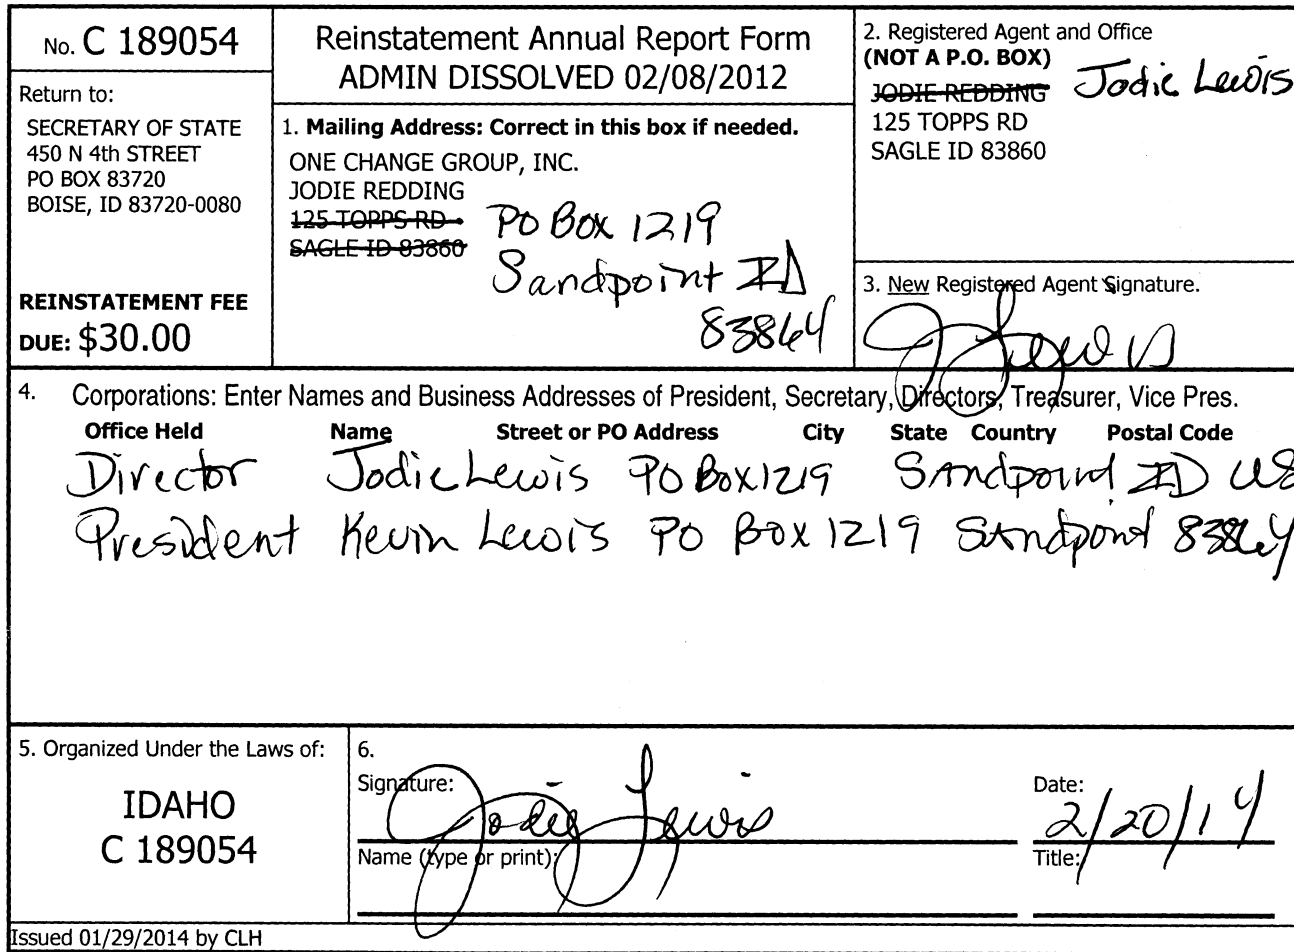 No. C 189054
Return to:
SECRETARY OF STATE
450 N 4th STREET
PO BOX 83720
BOISE, ID 83720-0080
REINSTATEMENT FEE
DUE: $30.00
Reinstatement Annual Report Form
ADMIN DISSOLVED 02/08/2012
1. Mailing Address: Correct in this box if needed.
ONE CHANGE GROUP, INC.
JODIE REDDING
125 TOPPS RD
SAGLE ID 83860
PO Box 1219
Sandpoint ID
83864
2. Registered Agent and Office
(NOT A P.O. BOX)
JODIE REDDING Jodie Lewis
125 TOPPS RD
SAGLE ID 83860
3. New Registered Agent Signature.
J Lewis
4. Corporations: Enter Names and Business Addresses of President, Secretary, Directors, Treasurer, Vice Pres.
Office Held Name Street or PO Address City State Country Postal Code
Director Jodie Lewis PO Box 1219 Sandpoint ID US
President Kevin Lewis PO Box 1219 Sandpoint 83864
5. Organized Under the Laws of:
IDAHO
C 189054
6.
Signature: Jodie Lewis
Date: 2/20/14
Name (type or print):
Title:
Issued 01/29/2014 by CLH